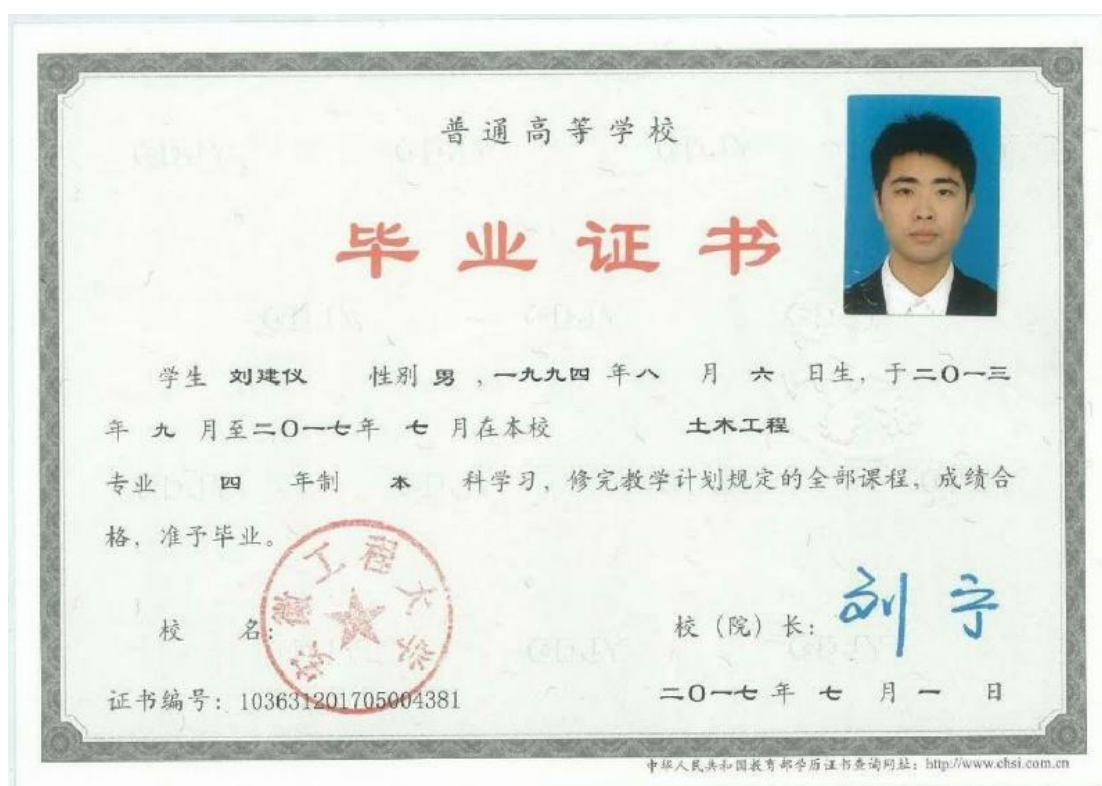 普通高等学校
毕业证书
学生 刘建仪 性别 男 ,一九九四 年 八 月 六 日生, 于二〇一三
年 九 月至二〇一七年 七 月在本校 土木工程
专业 四 年制 本 科学习, 修完教学计划规定的全部课程, 成绩合
格, 准予毕业。
安徽工程大学
校 名:
校 (院) 长: 刘宁
证书编号: 103631201705004381
二〇一七 年 七 月 一 日
中华人民共和国教育部学历证书查询网址: http://www.chsi.com.cn